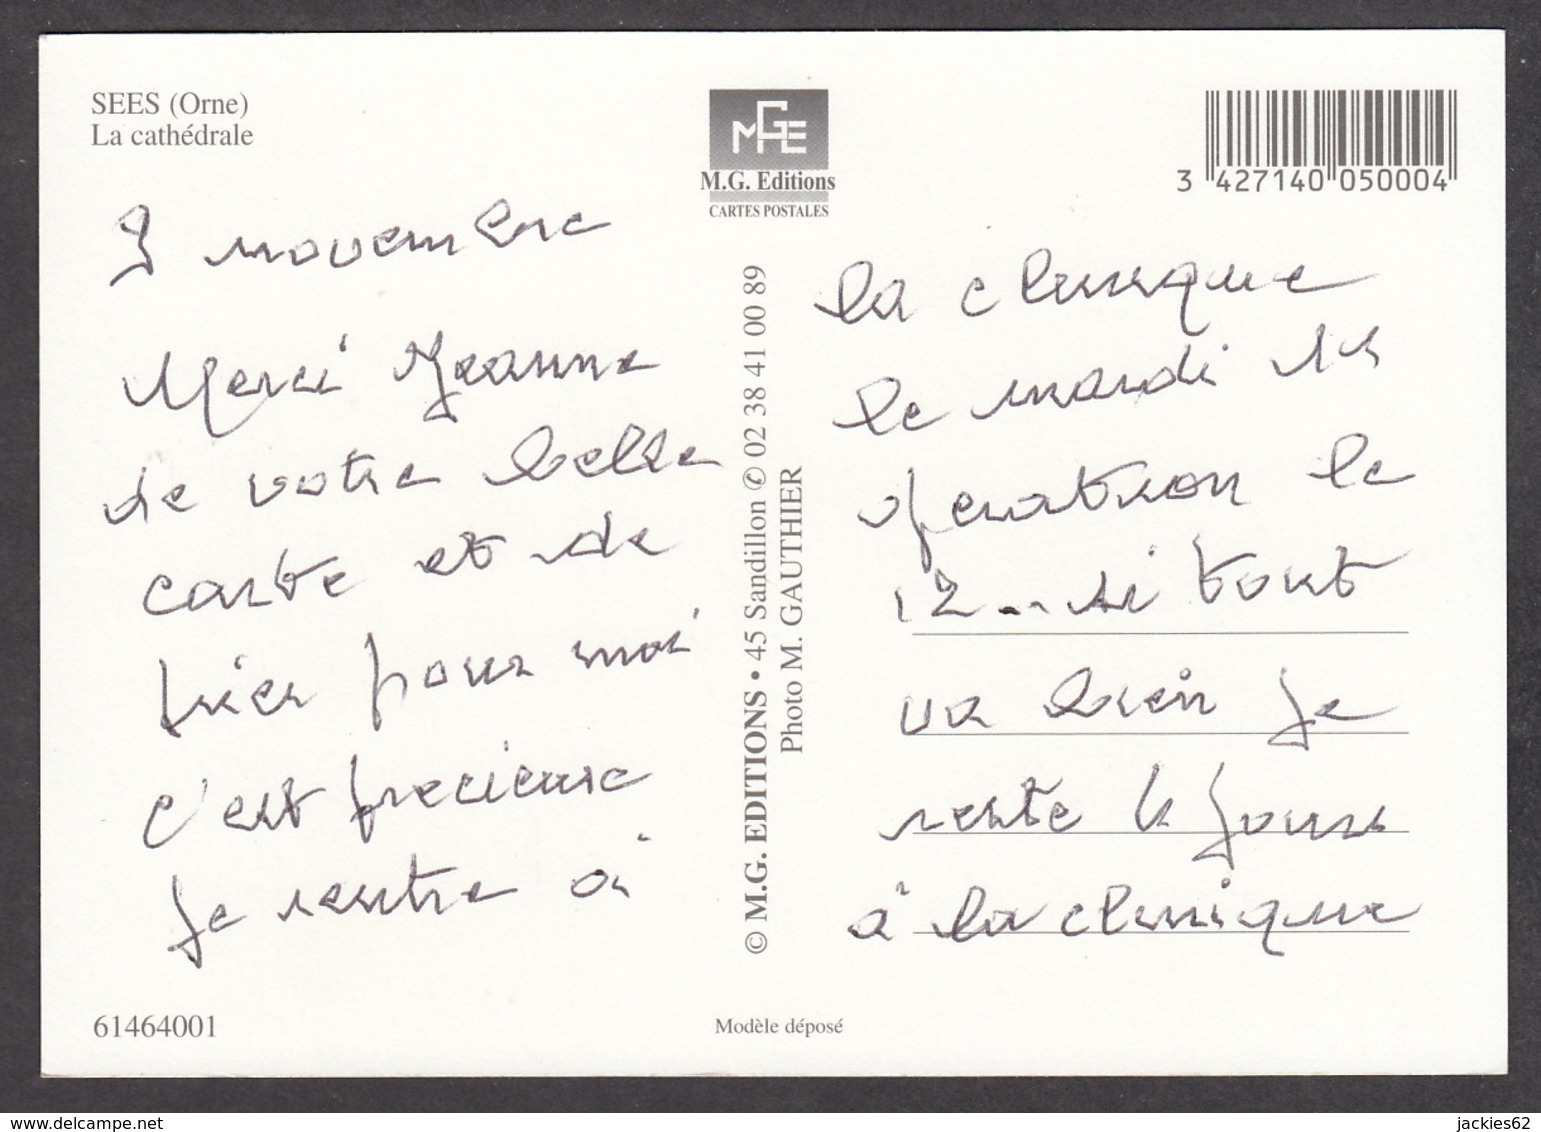 SEES (Orne)
La cathédrale
MGE
M.G. Editions
CARTES POSTALES
3 427140 050004
novembre
Merci Jeanne
de votre belle
carte et de
prier pour moi
c'est precieuse
Je rentre à
© M.G. EDITIONS • 45 Sandillon ✆ 02 38 41 00 89
Photo M. GAUTHIER
la clinique
le mardi 11
operation le
12... si tout
va bien je
reste 4 jours
à la clinique
61464001
Modèle déposé
delcampe.net
jackies62